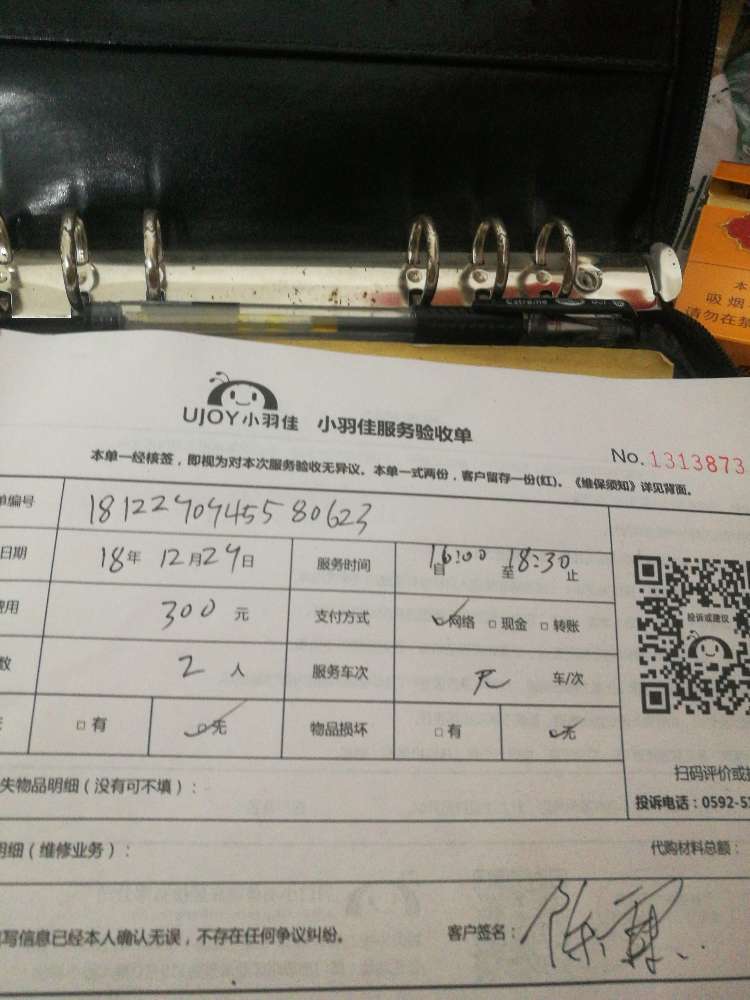 Extreme
本
吸烟
请勿在禁
UJOY小羽佳 小羽佳服务验收单
No.1313873
本单一经核签，即视为对本次服务验收无异议。本单一式两份，客户留存一份(红)。《维保须知》详见背面。
单编号 1812240945580623
日期 18年 12月24日 服务时间 自16:00 至18:30止
费用 300 元 支付方式 网络 现金 转账
数 2 人 服务车次 无 车/次
有 无 物品损坏 有 无
投诉或建议
扫码评价或投
投诉电话：0592-5
失物品明细（没有可不填）：
明细（维修业务）： 代购材料总额：
写信息已经本人确认无误，不存在任何争议纠纷。 客户签名：陈霖